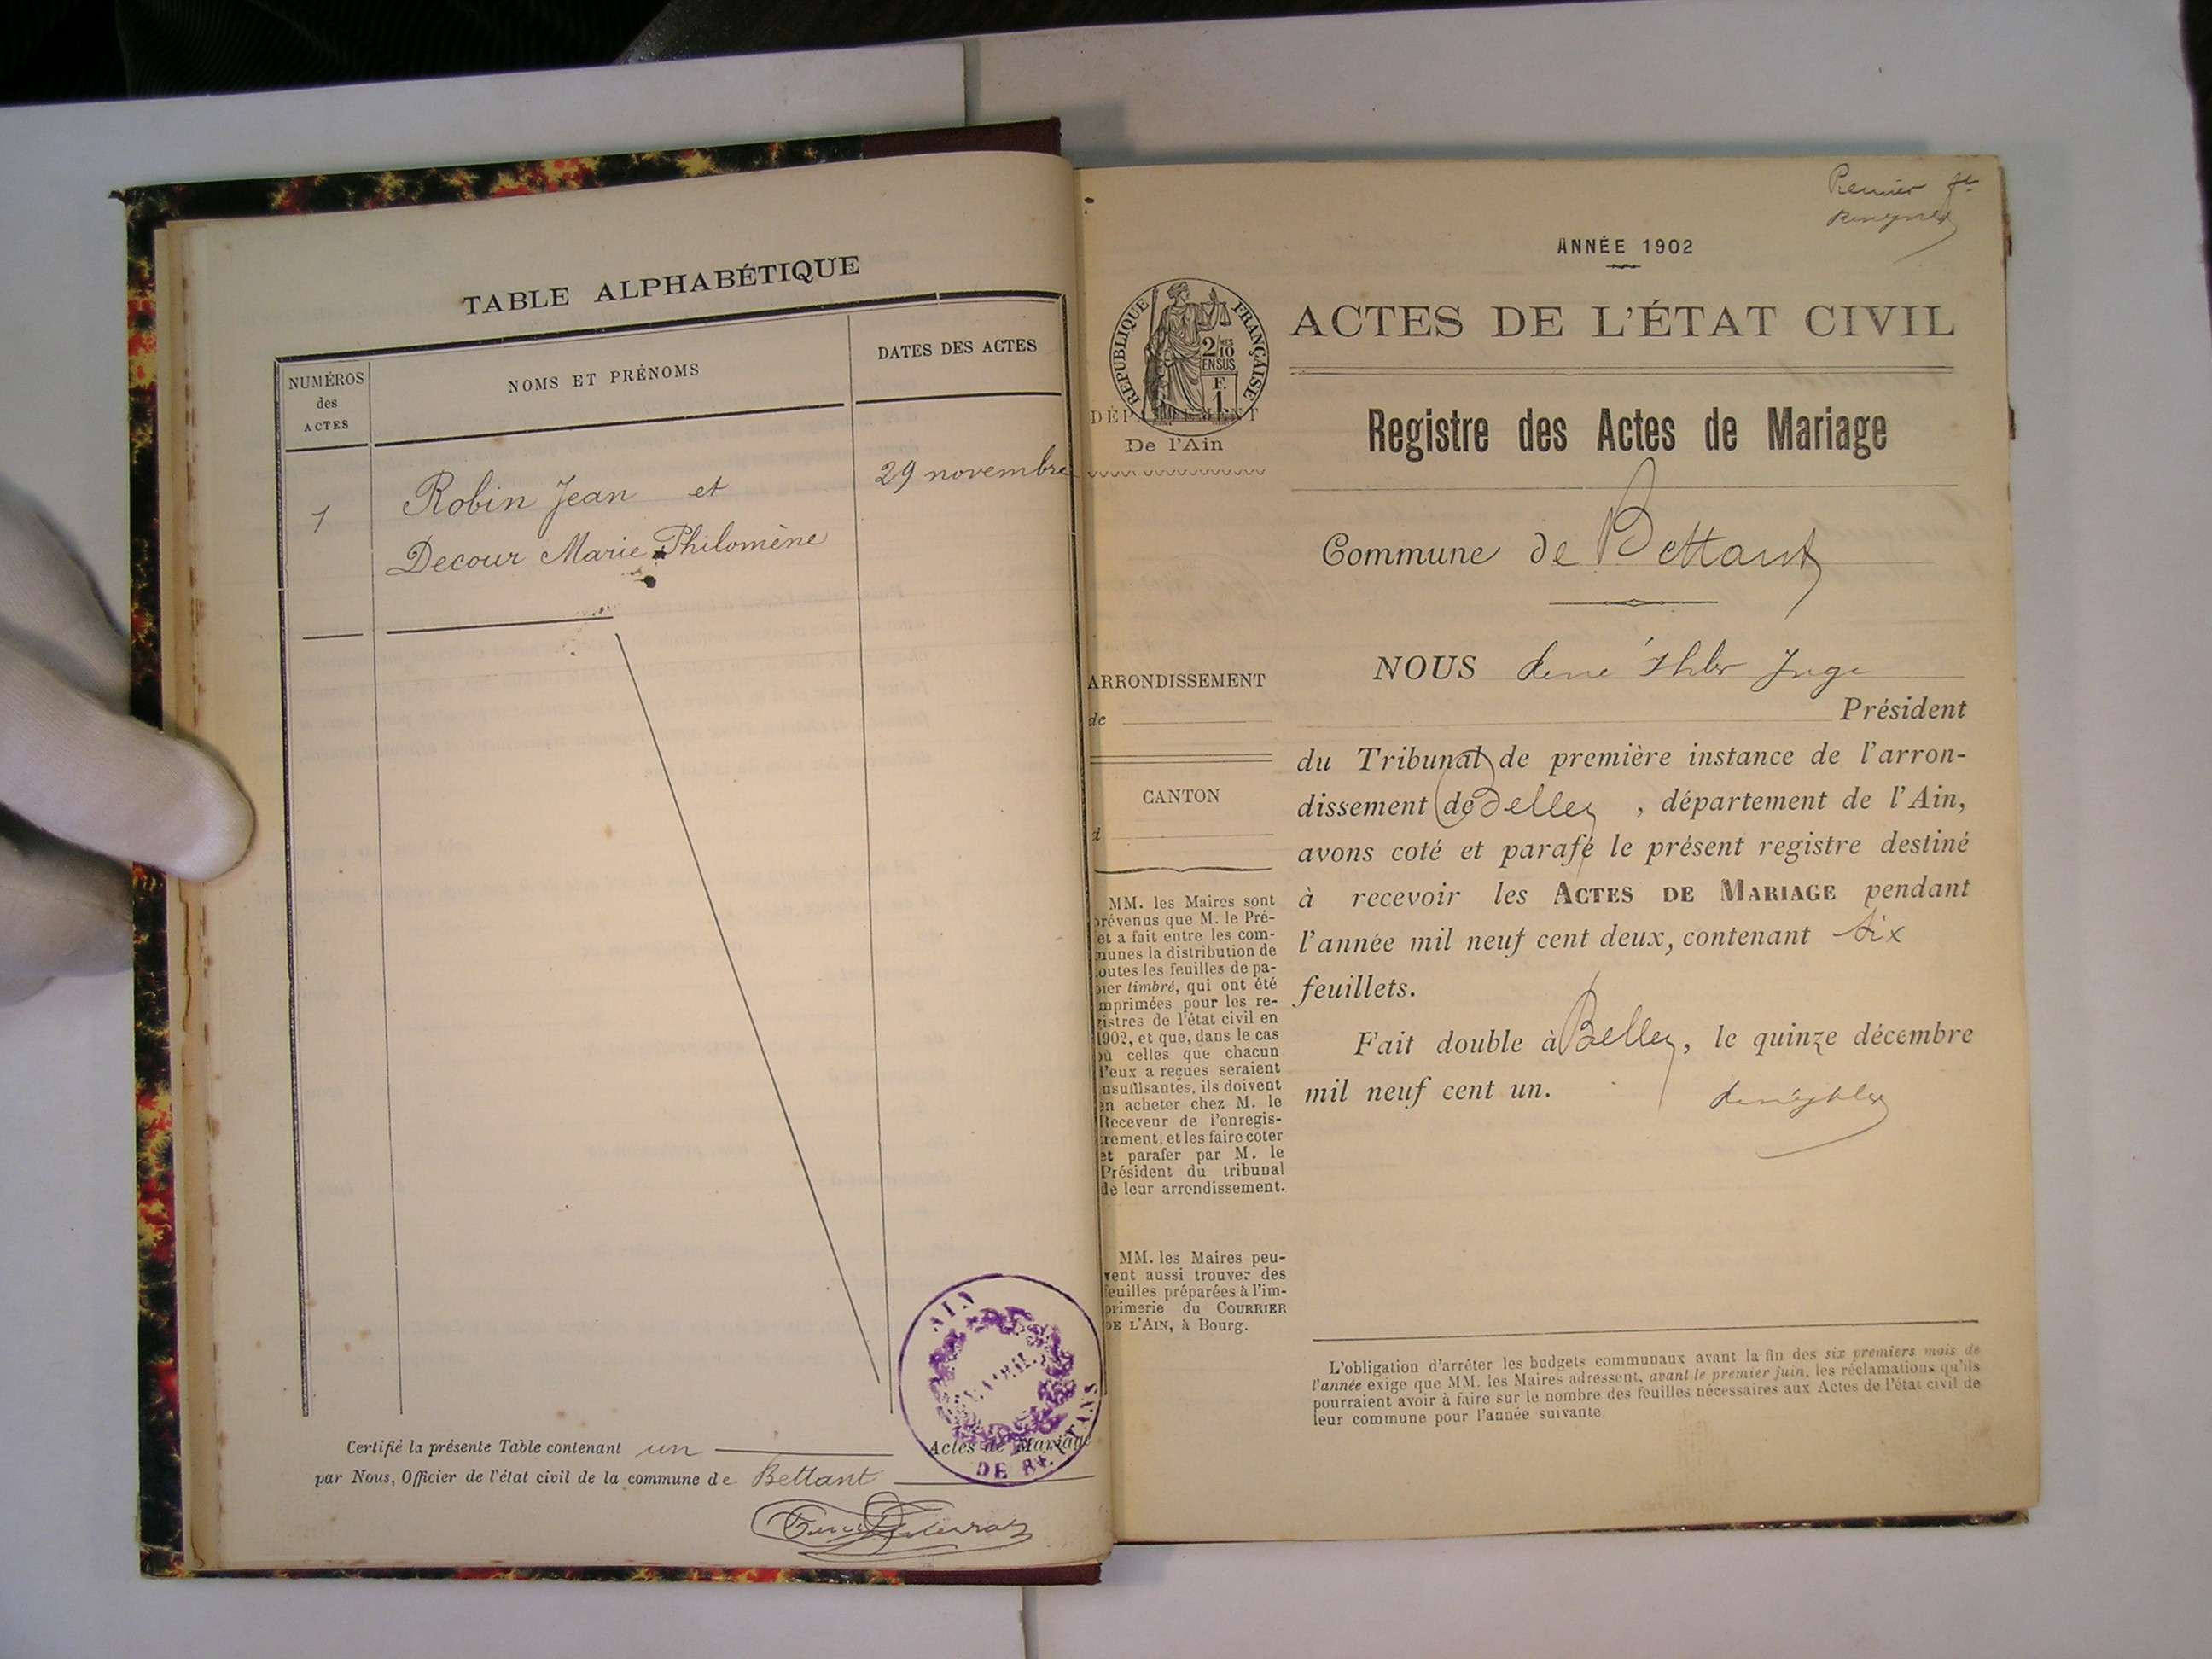 TABLE ALPHABÉTIQUE
NUMÉROS
des
ACTES
NOMS ET PRÉNOMS
DATES DES ACTES
1
Robin Jean et
Decour Marie Philomène
29 novembre
Certifié la présente Table contenant un Actes de Mariage
par Nous, Officier de l'état civil de la commune de Bettant
AIN
DE BETTANT
Premier
ANNÉE 1902
RÉPUBLIQUE FRANÇAISE
2/10
EN SUS
F.
1.
ACTES DE L'ÉTAT CIVIL
DÉPARTEMENT
De l'Ain
Registre des Actes de Mariage
Commune de Bettant
ARRONDISSEMENT
de
CANTON
d
MM. les Maires sont
prévenus que M. le Pré-
fet a fait entre les com-
munes la distribution de
toutes les feuilles de pa-
pier timbré, qui ont été
imprimées pour les re-
gistres de l'état civil en
1902, et que, dans le cas
où celles que chacun
d'eux a reçues seraient
insuffisantes, ils doivent
en acheter chez M. le
Receveur de l'enregis-
trement, et les faire coter
et parafer par M. le
Président du tribunal
de leur arrondissement.
MM. les Maires peu-
vent aussi trouver des
feuilles préparées à l'im-
primerie du COURRIER
DE L'AIN, à Bourg.
NOUS Juge
Président
du Tribunal de première instance de l'arron-
dissement de Belley, département de l'Ain,
avons coté et parafé le présent registre destiné
à recevoir les ACTES DE MARIAGE pendant
l'année mil neuf cent deux, contenant six
feuillets.
Fait double à Belley, le quinze décembre
mil neuf cent un.
L'obligation d'arrêter les budgets communaux avant la fin des six premiers mois de
l'année exige que MM. les Maires adressent, avant le premier juin, les réclamations qu'ils
pourraient avoir à faire sur le nombre des feuilles nécessaires aux Actes de l'état civil de
leur commune pour l'année suivante.